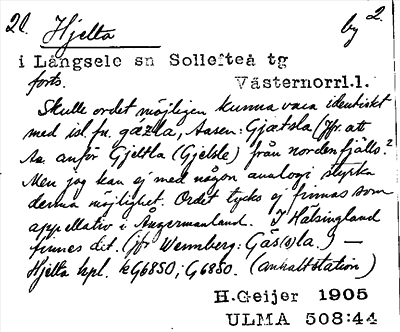 22. Hjelta by 2.
i Långsele sn Sollefteå tg
forts. Västernorrl.l.
Skulle ordet möjligen kunna vara identiskt
med isl. fn. gæzla, Aasen: Gjætsla (Jfr. att
Aa. anför Gjeltla (Gjelsle) från nordenfjälls?
Men jag kan ej med någon analogi styrka
denna möjlighet. Ordet tycks ej finnas som
appellativ i Ångermanland. I Hälsingland
finnes det. (jfr Wennberg: Gäs(s)la.) —
Hjelta hpl. kG6850; G6850. (anhaltstation)
H.Geijer 1905
ULMA 508:44